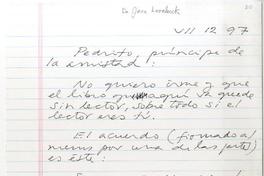 De Jorge
VII 12 97
Pedrito, príncipe de
la amistad:
No quiero irme y que
el libro aquí quede
sin lector, sobre todo si el
lector eres tú.
El acuerdo (firmado al
menos por una de las partes)
es éste: